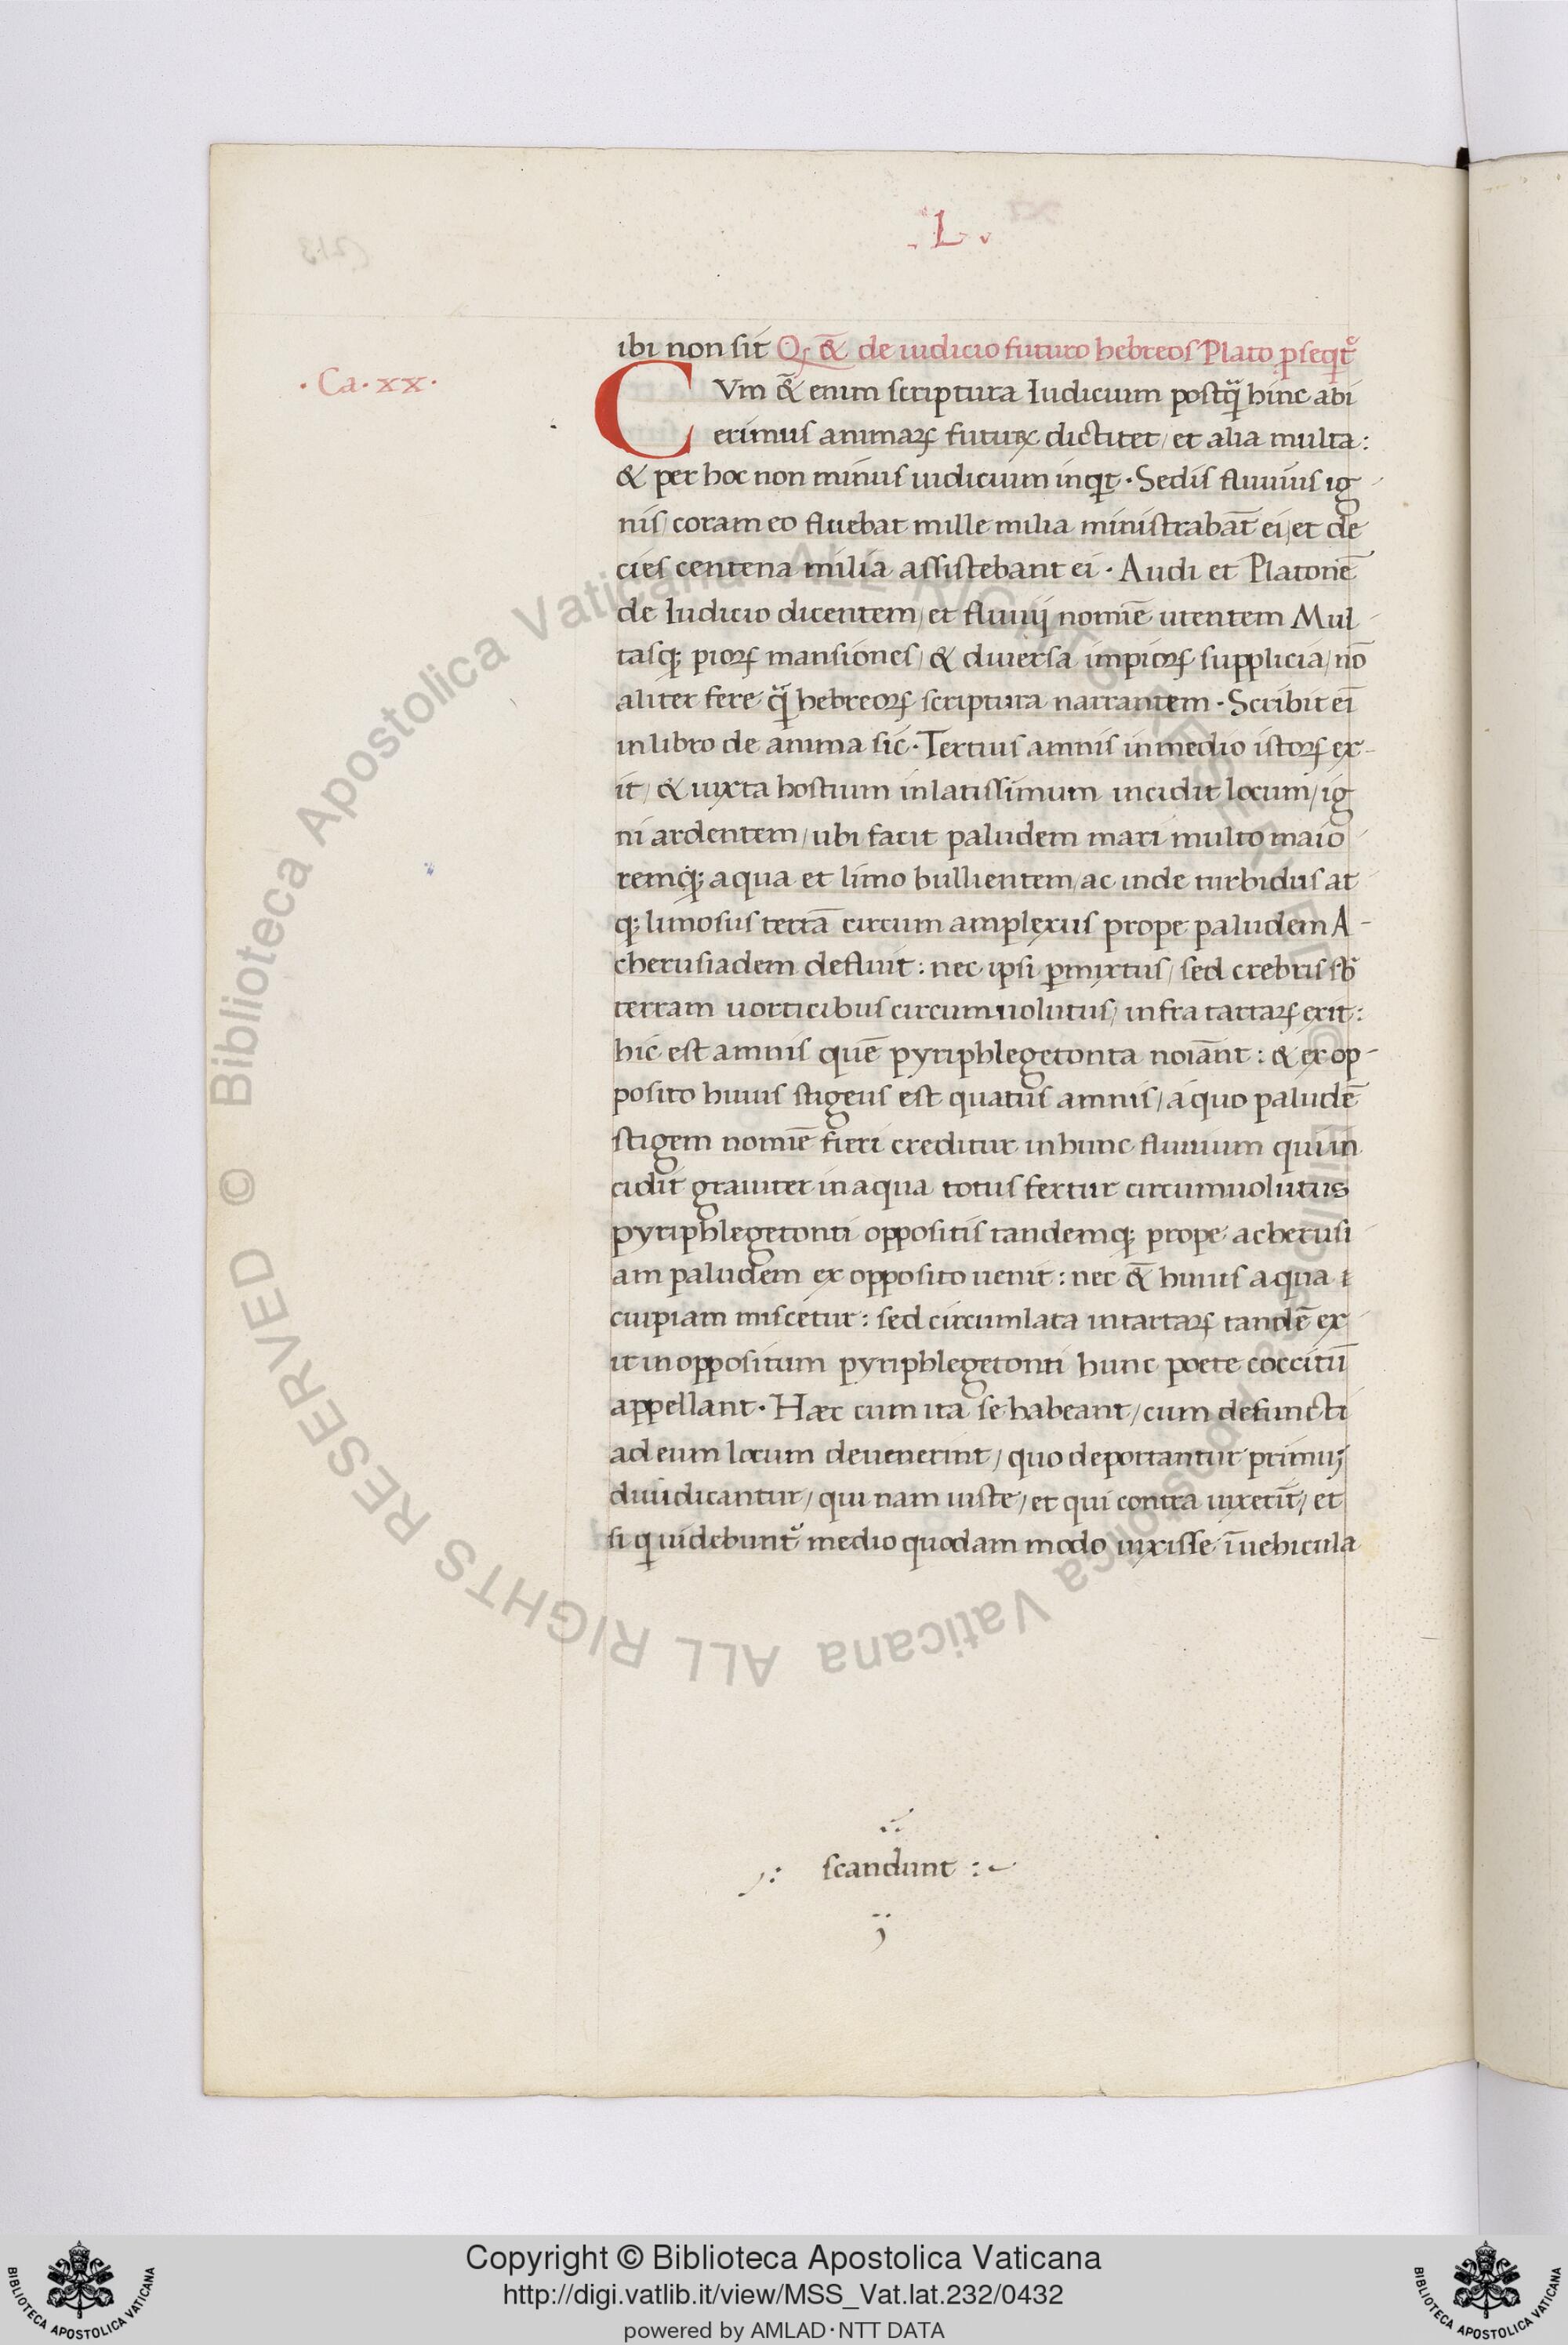 . L .
ibi non sit Qꝫ &̃ de iudicio futuro hebreos Plato ꝓseqt᷑
. Ca . xx .
CVm &̃ enim scriptura Iudicium postq̃ hinc abi
erimus animaꝝ futurꝝ dictitet / et alia multa :
& per hoc non minus iudicium inqt . Sedis fluuius ig -
nis / coram eo fluebat mille milia ministrabãt ei / et de
cies centena milia assistebant ei . Audi et Platonē
de Iudicio dicentem / et fluuij nomīe utentem Mul -
tasqꝫ pioꝝ mansiones / & diuersa impioꝝ supplicia / nō
aliter fere q̃ hebreoꝝ scriptura narrantem . Scribit ei̅
in libro de anima sic . Tertius amnis in medio istoꝝ ex -
it / & iuxta hostium in latissimum incidit locum / ig
ni ardentem / ubi facit paludem mari multo maio -
remqꝫ aqua et limo bullientem / ac inde turbidus at -
qꝫ limosus terrā circum amplexus prope paludem A -
cherusiadem defluit : nec ipsi ꝑmixtus / sed crebris sb̃
terram uorticibus circumuolutus / infra tartaꝝ exit :
hic est amnis quē pyriphlegetonta noīant : & ex op -
posito huius stigeus est quatus amnis / a quo paludē
stigem nomīe fieri creditur in hunc fluuium qui in
cidit grauiter in aqua totus fertur circumuolutus
pyriphlegetonti oppositis tandemqꝫ prope acherusi -
am paludem ex opposito uenit : nec &̃ huius aqua
cuipiam miscetur : sed circumlata in tartaꝝ tandē ex -
it in oppositum pyriphlegetonti hunc poete coccitū
appellant . Hæc cum ita se habeant / cum defuncti
ad eum locum deuenerint / quo deportantur primuꝫ
diuidicantur / qui nam iuste / et qui contra uixerīt / et
si q uidebunt᷑ medio quodam modo uixisse ī uehicula
scandunt :
Biblioteca Apostolica Vaticana ALL RIGHTS RESERVED © Biblioteca Apostolica Vaticana ALL RIGHTS RESERVED ©
Copyright © Biblioteca Apostolica Vaticana
http://digi.vatlib.it/view/MSS_Vat.lat.232/0432
powered by AMLAD·NTT DATA
BIBLIOTECA APOSTOLICA VATICANA
BIBLIOTECA APOSTOLICA VATICANA